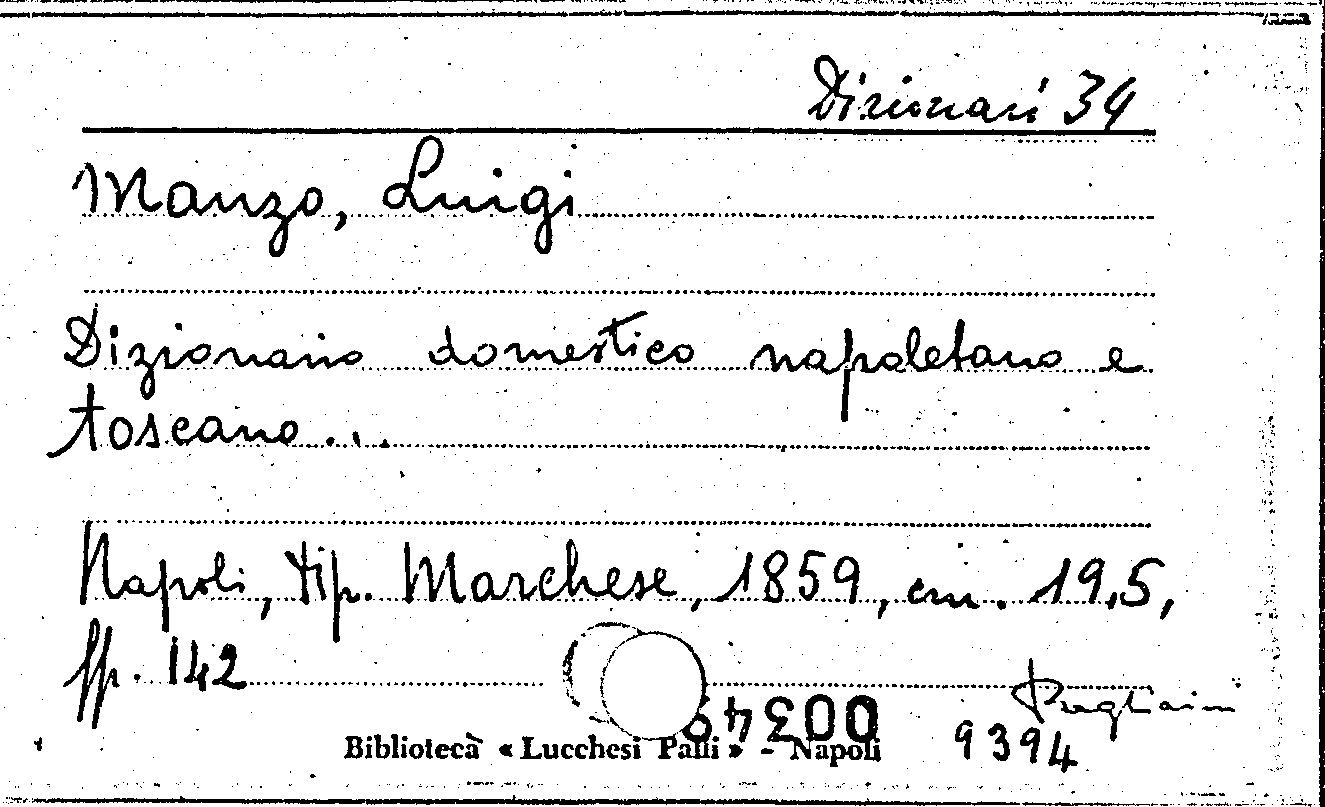 Dizionari 34
Manzo, Luigi
Dizionario domestico napoletano e
toscano...
Napoli, tip. Marchese, 1859, cm. 19,5,
pp. 142
Biblioteca « Lucchesi Palli » - Napoli
9394